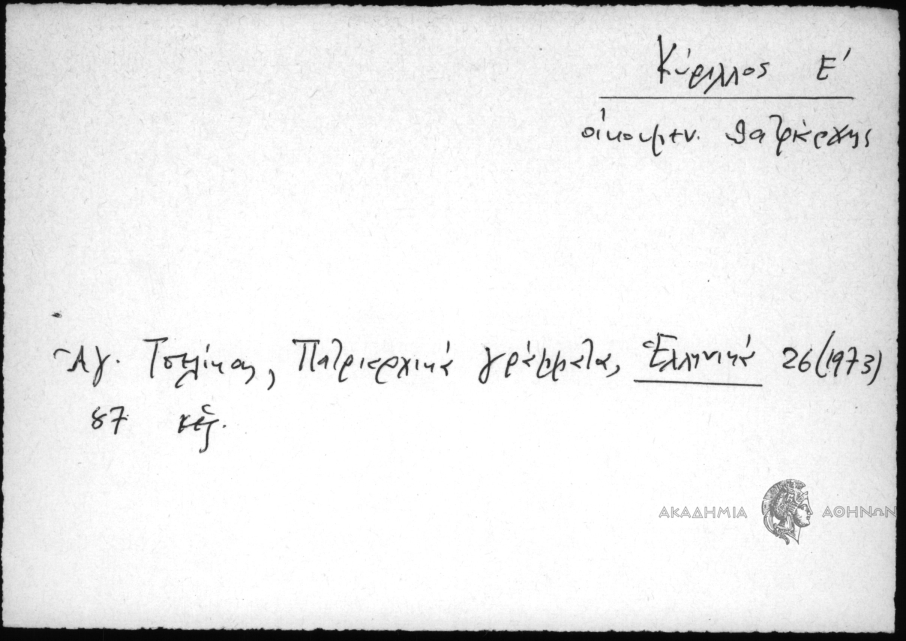 Κύριλλος Ε'
οἰκουμεν. Πατριάρχης
Ἀγ. Τσελίκας, Πατριαρχικά γράμματα, Ἑλληνικά 26(1973)
87 κἑξ.
ΑΚΑΔΗΜΙΑ ΑΘΗΝΩΝ